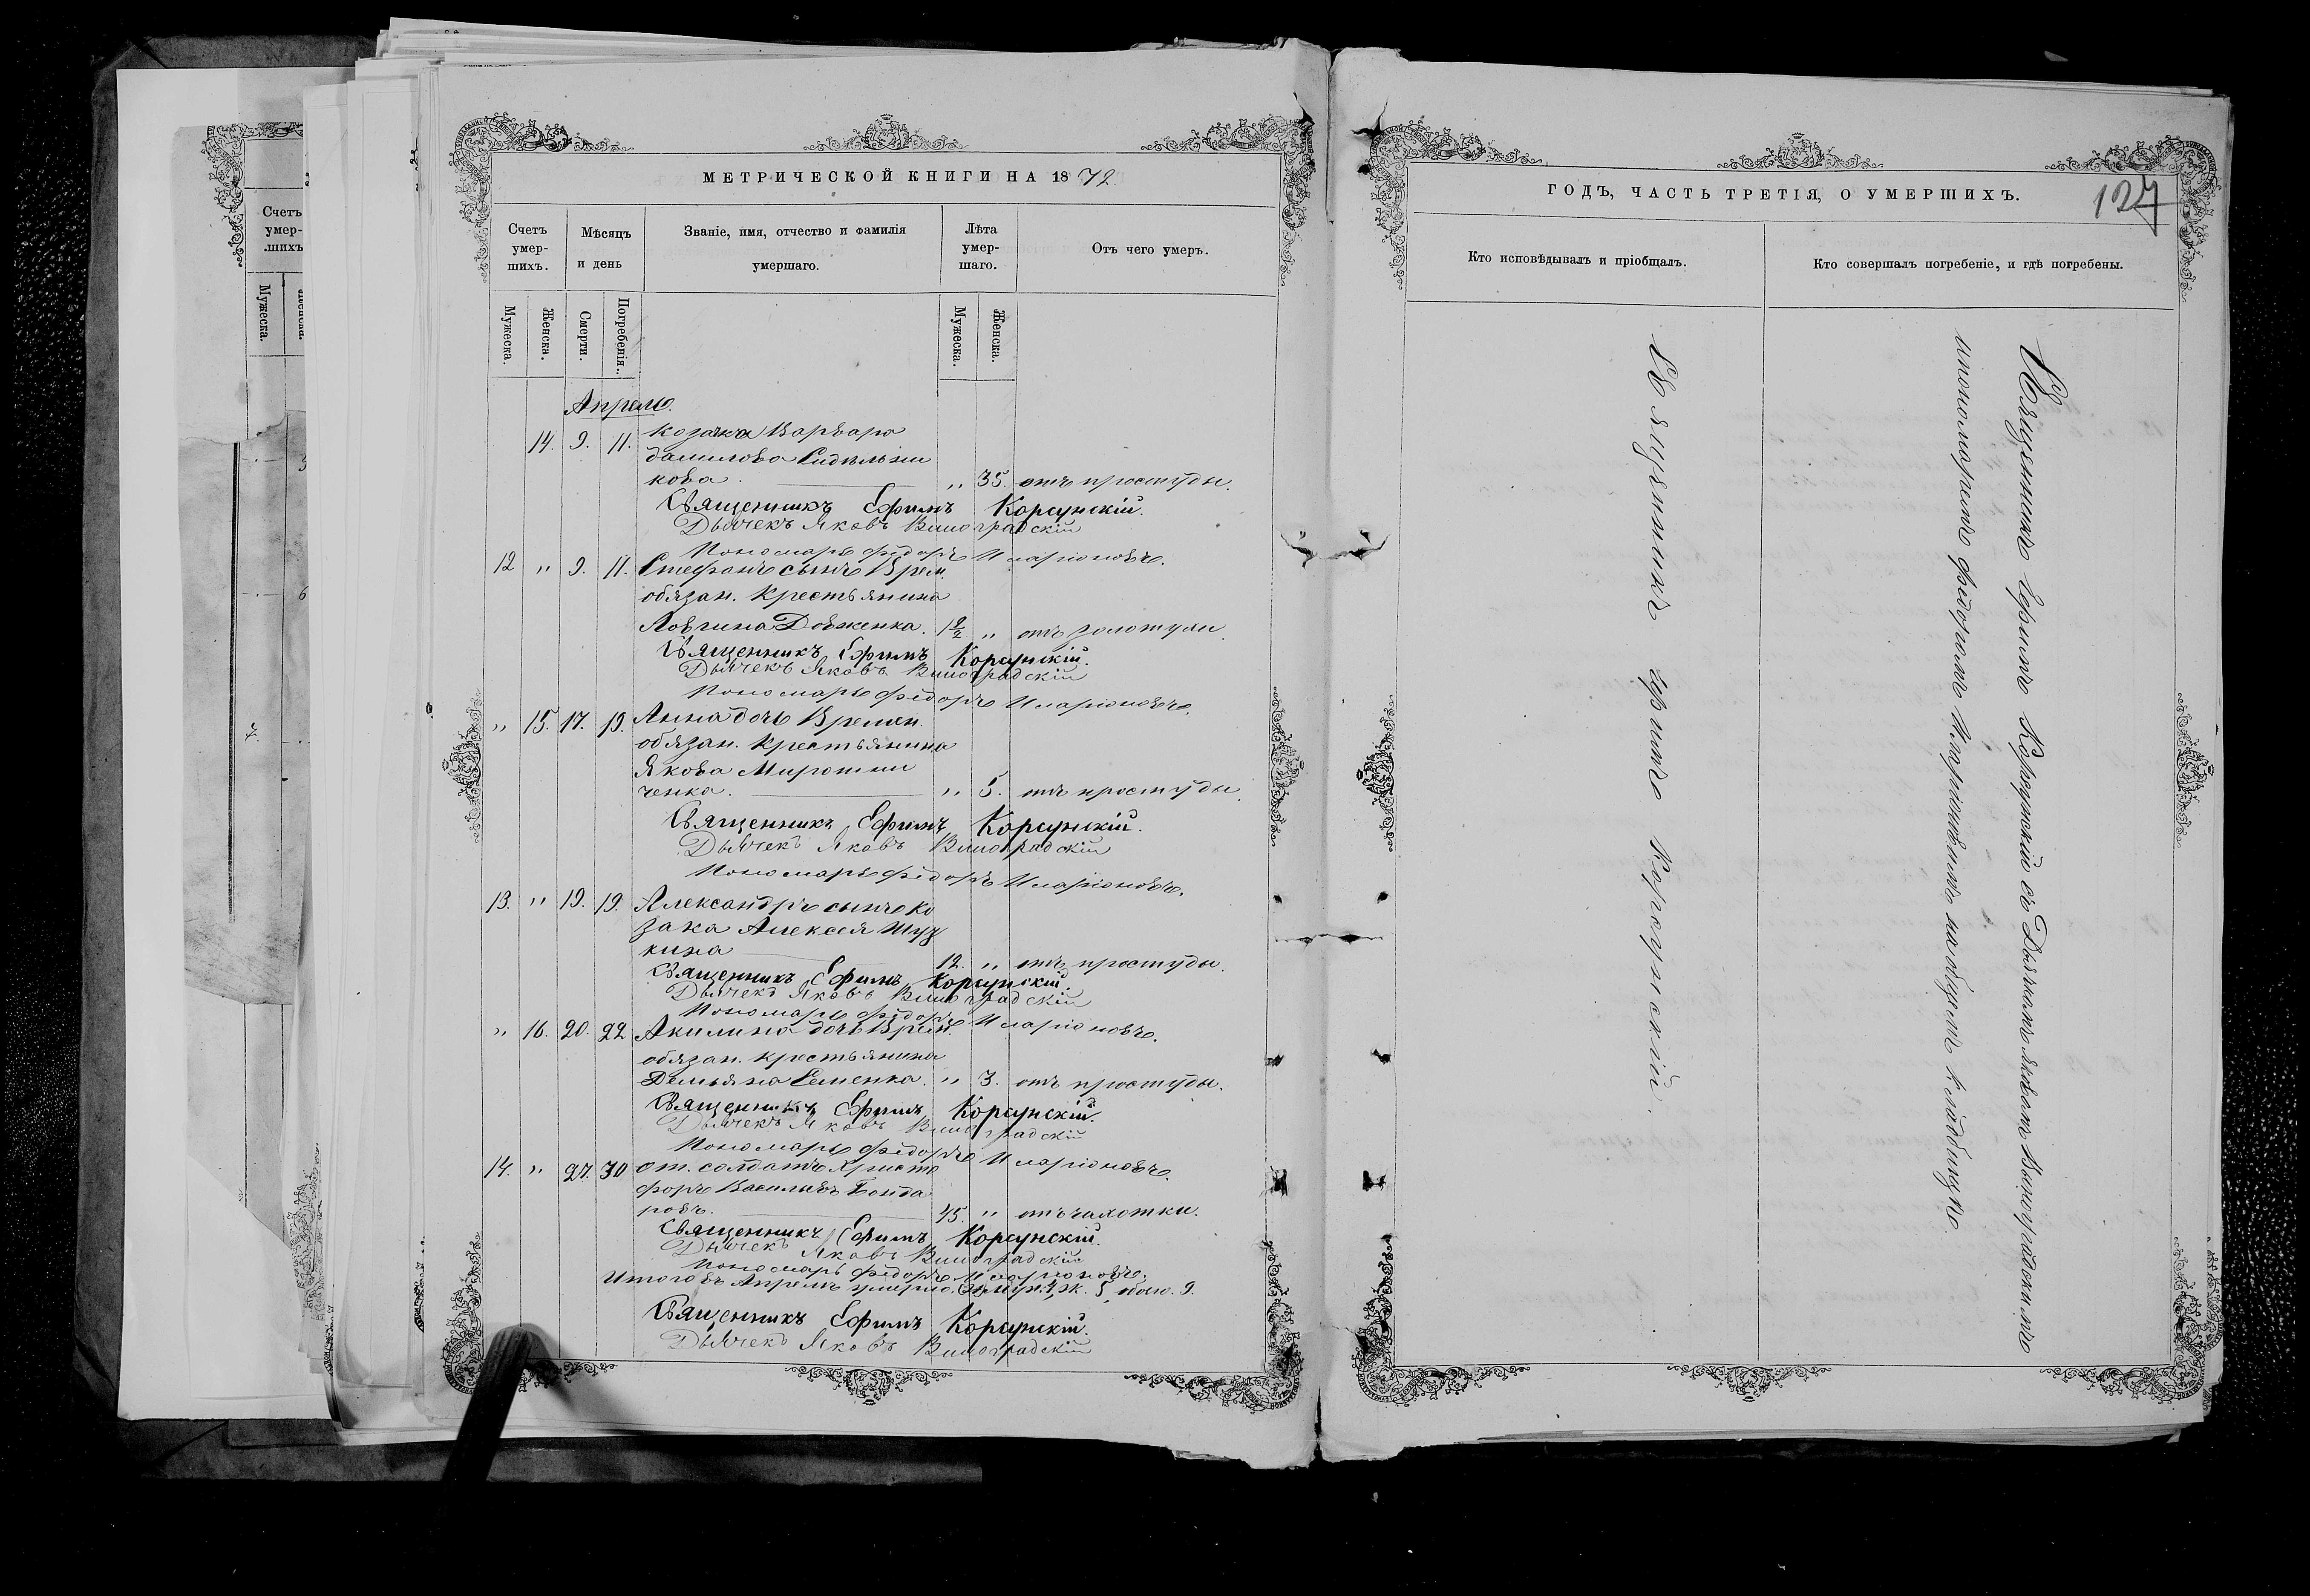 МЕТРИЧЕСКОЙ КНИГИ НА 1872
Счетъ умер-шихъ.
Мѣсяцъ и день
Званіе, имя, отчество и фамилія умершаго.
Лѣта умер-шаго.
Отъ чего умеръ.
Мужеска.
Женска.
Смерти.
Погребенія.
Мужеска.
Женска.
Апрель.
14. 9. 11. Козачка Варвара
данилова
кова. „ 35. отъ простуды.
Священникъ Ефимъ Корсунскій.
Дьячекъ Яковъ Виноградскій
Пономарь Фѣдоръ Иларіоновъ.
12 „ 9. 11. Стефанъ сынъ Врем.
обязан. крестьянина
Логвина Довженка. 1½ „ отъ золотухи.
Священникъ Ефимъ Корсунскій.
Дьячекъ Яковъ Виноградскій
Пономарь Фѣдоръ Иларіоновъ.
„ 15. 17. 19. Анна дочь Времен.
обязан. крестьянина
Якова Мирошни
ченка. „ 5. отъ простуды.
Священникъ Ефимъ Корсунскій.
Дьячекъ Яковъ Виноградскій
Пономарь Фѣдоръ Иларіоновъ.
13. „ 19. 19. Александръ сынъ ко
зака Алексея
12. „ отъ простуды.
Священникъ Ефимъ Корсунскій.
Дьячекъ Яковъ Виноградскій
Пономарь Фѣдоръ Иларіоновъ.
„ 16. 20. 22 Акилина дочь Врем.
обязан. крестьянина
Демьяна Семенка. „ 3. отъ простуды.
Священникъ Ефимъ Корсунскій.
Дьячекъ Яковъ Виноградскій
Пономарь Фѣдоръ Иларіоновъ.
14. „ 27. 30 от. солдатъ Христо
форъ Васильевъ Бонда
ровъ. 45. „ отъ чахотки.
Священникъ Ефимъ Корсунскій.
Дьячекъ Яковъ Виноградскій
Пономарь Фѣдоръ Иларіоновъ.
Итого въ Апрелѣ умерло муж. 4, ж. 5, обоего 9.
Священникъ Ефимъ Корсунскій.
Дьячекъ Яковъ Виноградскій
ГОДЪ, ЧАСТЬ ТРЕТІЯ, О УМЕРШИХЪ.
127
Кто исповѣдывалъ и пріобщалъ.
Кто совершалъ погребеніе, и гдѣ погребены.
Священникъ Ефимъ Корсунскій.
Священникъ Ефимъ Корсунскій съ Дьячкомъ Яковомъ Виноградскимъ
и пономаремъ Фѣдоромъ Иларіоновимъ на общемъ кладбищѣ.
Счетъ умер-шихъ
Мужеска.